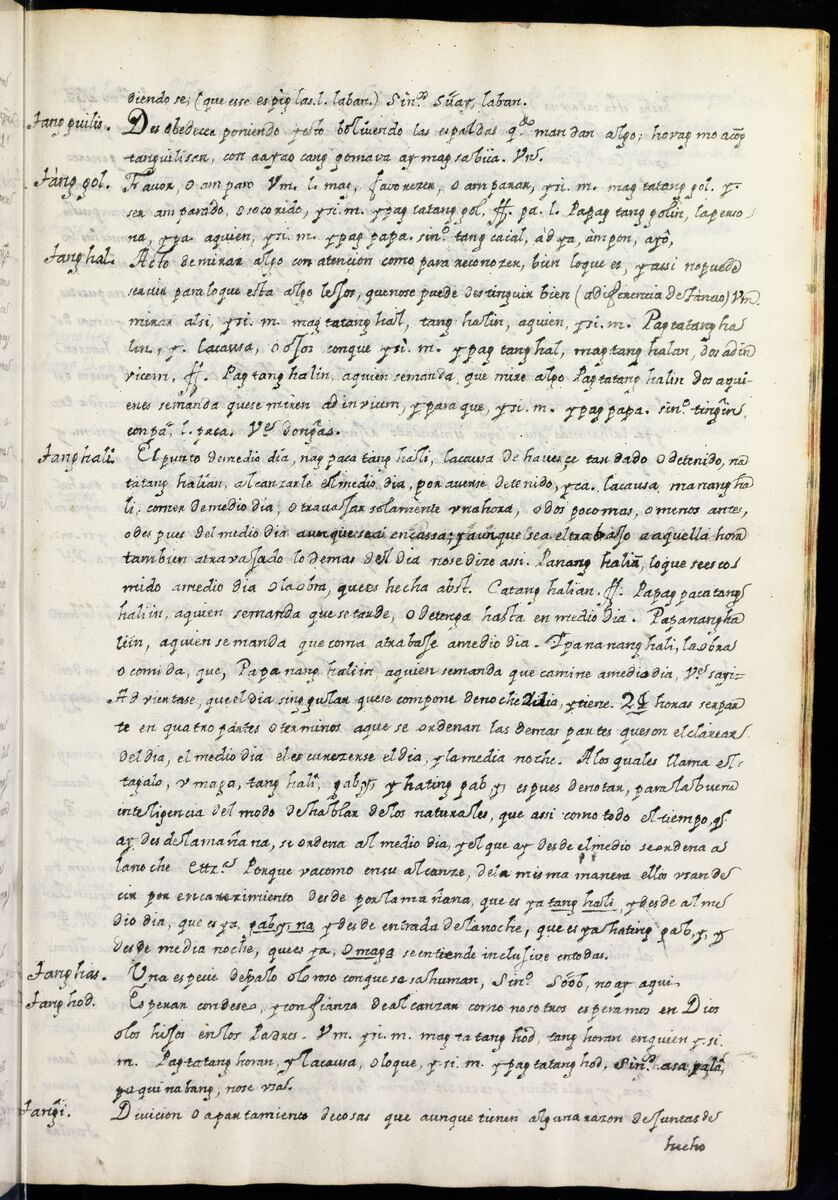 diendo se, (que esse es pig las. l. laban.) Sin.º Süay, laban.
Tang quilis. Desobedecer poniendo yesto bolviendo las espaldas q.do mandan algo; horag mo acoᷠg
tanquilisan, con aayao cang gomava ay mag sabiia. Vn.
Táng gol. Favor, o amparo Vm. l. mag, favorezer, o amparar, y si. m. mag tatang gol. y.
ser amparado, o socorido, y si. m. y pag tatang gol, ff. pa. l. Papag tang golin, la perso
na, y pa. aquien, y si. m. y pag papa. sin.º tang caial, ad ya, ampon, ayō,
Tang hal. Acto de mirar algo con atencion como para reconozer, bien loque es, y assi nopuede
servir paraloque esta algo lejos, quenose puede destinguir bien (adiferencia de tanao) Vm.
mirar alsi, y si. m. mag tatang hal, tang halin, aquien, y si. m. Pag tatang ha
lin, y. la causa, o ojos conque y si. m. y pag tang hal, mag tang halan, dos adin
vicem, ff. Pag tang halin, aquien semanda, que mire algo Pag tatang halin dos aqui-
enes semanda quese miren ad invicem, y para que, y si. m. y pag papa. sin.º tingin
con pa. l. paca. Ve dongas.
Tang hali. El punto demedio dia, nag paca tang hali, lacausa de haverçe tardado o detenido, na
tatang halian, alcanzarle elmedio dia, por averse detenido, y ca. lacausa, manang ha
li, comer demedio dia, o travajar solamente vnahora, o dos poco mas, o menos antes,
o des pues del medio dia aunque sea en cassa; y aunque sea el trabajo a aquella hora
tambien atravajado lo demas del dia nose dize assi. Panang halian, loque se esco
mido amedio dia o la obra, quees hecha abst. Catang halian. ff. Papag paca tang
haliin, aquien semanda quese tarde, o detenga hasta en medio dia. Papanang ha
liin, aquien semanda que coma atrabaje amedio dia. Ypananang hali, la obra
o comida, que, Papa nang haliin aquien semanda que camine amedio dia, Ve sayi=
Ad viertase, que el dia singular quese compone denoche y dia, y tiene. 24 horas separ
te en quatro partes o terminos aque se ordenan las demas partes queson el clarear
del dia, el medio dia el escurezerse el dia, y la media noche. A los quales llama el-
tagalo, vmaga, tang hali, gaby, y hating gab y, es pues denotar, para la buena
inteligencia del modo de hablar de los naturales, que assi como todo el tiempo, q̃
ay des de la mañana, se ordena al medio dia, y el que ay desde el medio se ordena a
la noche Ettr.a Porque va como en su alcanze, de la misma manera ellos vsan de
cir por encarezimiento desde por la mañana, que es ya tang hali, y desde al me
dio dia, que es ya, gab y, na y desde entrada de la noche, que es ya hating gab y, y
desde media noche, quees ya, o maga se entiende inclusive en todas.
Tang hias. Una especie depalo oloroso conque se sahuman, Sin.º Soob, no ay aqui.
Tang hod. Esperar con deseo, y confianza de alcanzar como nosotros esperamos en Dios
o los hijos en los Padres. Vm. y si. m. mag ta tang hod, tang horan en quien y si.
m. Pag tatang horan, y la causa, o loque, y si. m. y pag tatang hod, Sin.º asa, pala,
pa quinabang, nose vsa.
Tangi. Divicion o apartamiento de cosas que aunque tienen alguna razon de juntas de
hecho